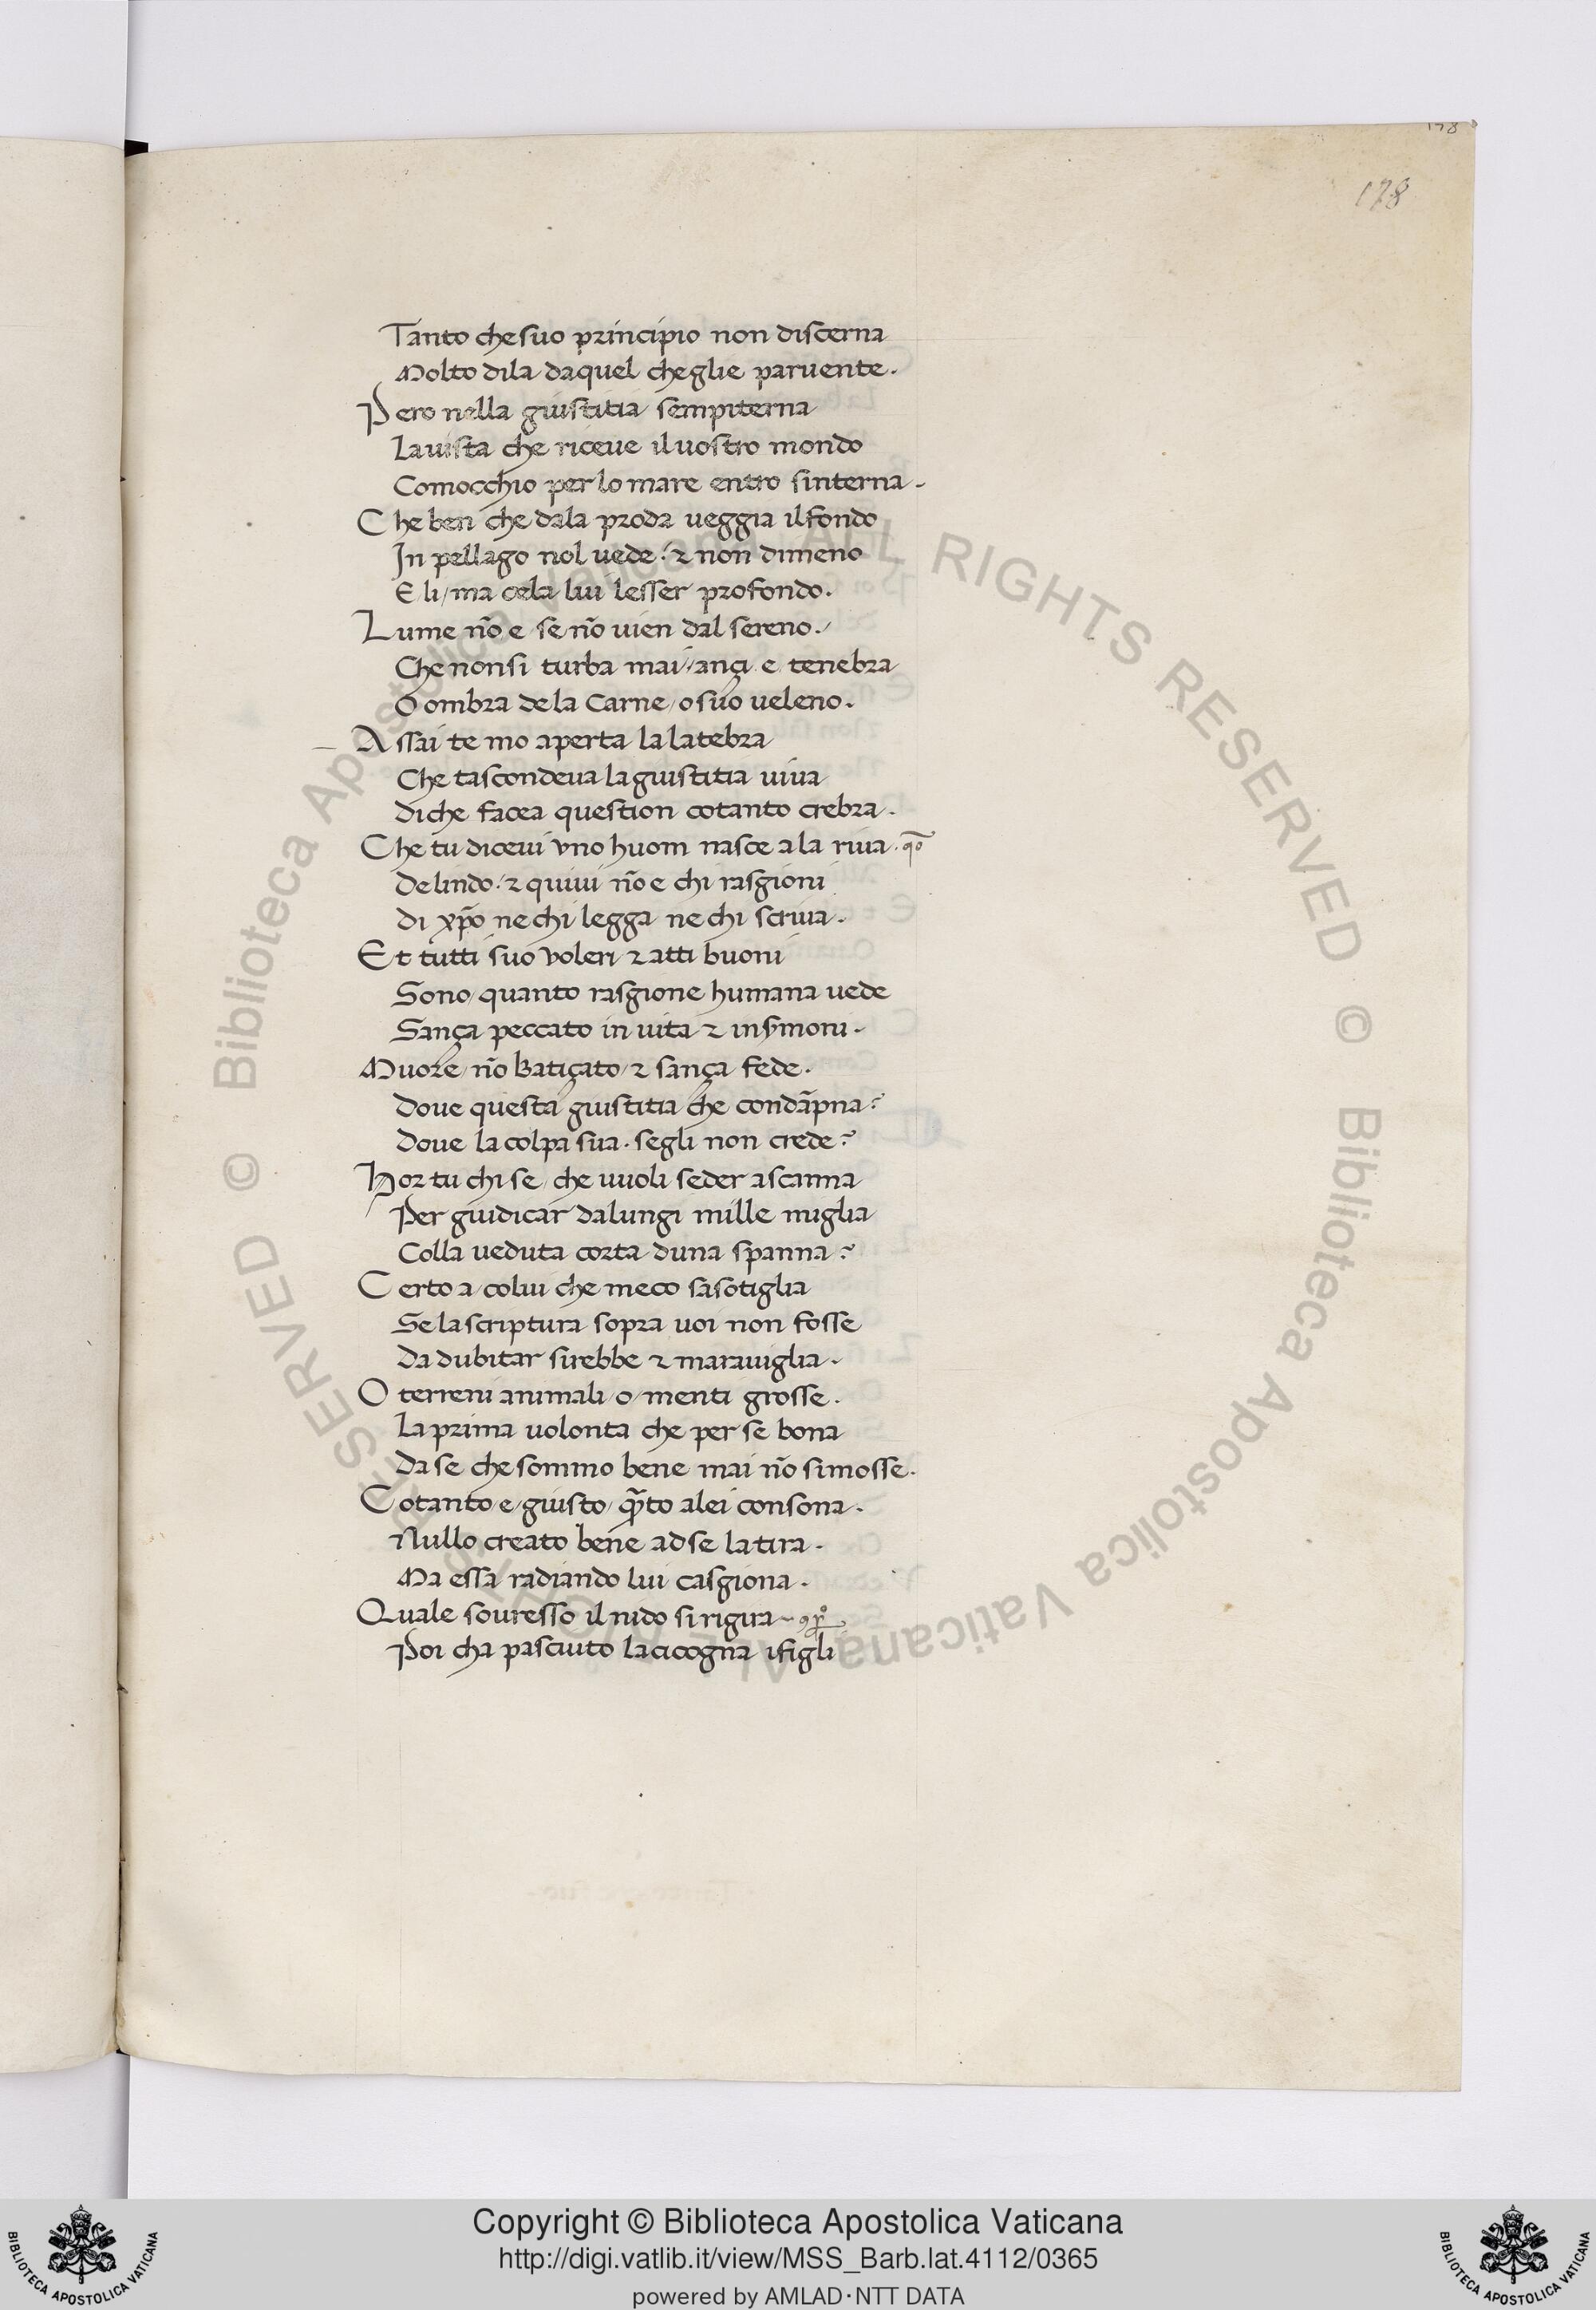 178
178
Tanto che suo principio non discerna
Molto dila daquel cheglie paruente.
Pero nella giustitia sempiterna
La uista che riceue il uostro mondo
Comocchio per lo mare entro sinterna.
Che ben che dala proda ueggia il fondo
In pellago nol uede / ⁊ non dimeno
E li / ma cela lui lesser profondo.
Lume nõ e se nõ uien dal sereno. /
Che non si turba mai / ançi e tenebra
O ombra de la Carne / o suo ueleno.
Assai te mo aperta la latebra
Che tascondeua la giustitia uiua
Di che facea question cotanto crebra.
Che tu diceui vno huom nasce a la riua. qõ
De lindo / ⁊ quiui nõ e chi rasgioni
Di xp̃o ne chi legga ne chi scriua.
Et tutti suo voleri ⁊ atti buoni
Sono / quanto rasgione humana uede
Sança peccato in uita ⁊ in symoni.
Muore / nõ batiçato / ⁊ sança fede.
Doue questa giustitia che condãpna?
Doue la colpa sua. segli non crede?
Hor tu chi se / che uuoli seder a scanna
Per giudicar da lungi mille miglia
Colla ueduta corta duna spanna?
Certo a / colui che meco sasotiglia
Se la scriptura sopra uoi non fosse
Da dubitar sirebbe ⁊ marauiglia.
O terreni animali / o / menti grosse.
La prima uolonta che per se bona
Da se che sommo bene mai nõ si mosse.
Cotanto / e / giusto / q̃to a lei consona.
Nullo creato bene ad se la tira.
Ma essa radiando lui casgiona.
Quale souresso il nido si rigira
Poi cha pasciuto la cicogna i figli
© Biblioteca Apostolica Vaticana ALL RIGHTS RESERVED © Biblioteca Apostolica Vaticana ALL RIGHTS RESERVED
BIBLIOTECA APOSTOLICA VATICANA
Copyright © Biblioteca Apostolica Vaticana
http://digi.vatlib.it/view/MSS_Barb.lat.4112/0365
powered by AMLAD·NTT DATA
BIBLIOTECA APOSTOLICA VATICANA